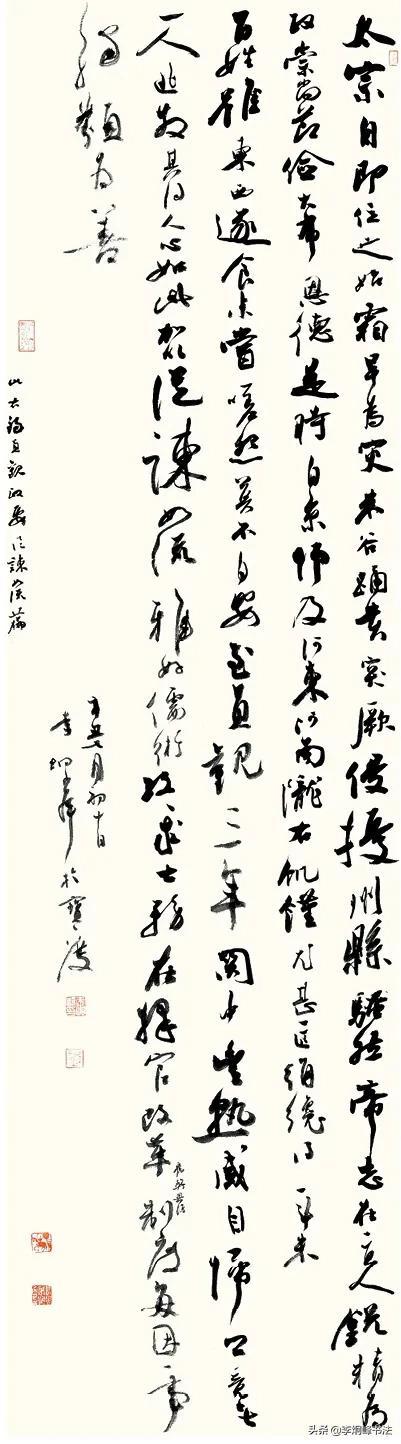 太宗自即位之始霜旱為灾米谷踊贵突厥侵擾州縣騷然帝志在忧人銳精為
政崇尚節儉大布恩德是時自京師及河東河南隴右飢饉尤甚一匹絹纔得一斗米
百姓雖東西逐食未嘗嗟怨莫不自安至貞觀三年關中豐熟咸自歸鄉竟無
一人逃散其得人心如此加以從諫如流雅好儒術孜孜求士務在擇官改革舊弊興復制度每因一事
觸類為善
貞觀政要
辛丑七月初十日
李炯峰於寶
头条 @李炯峰书法